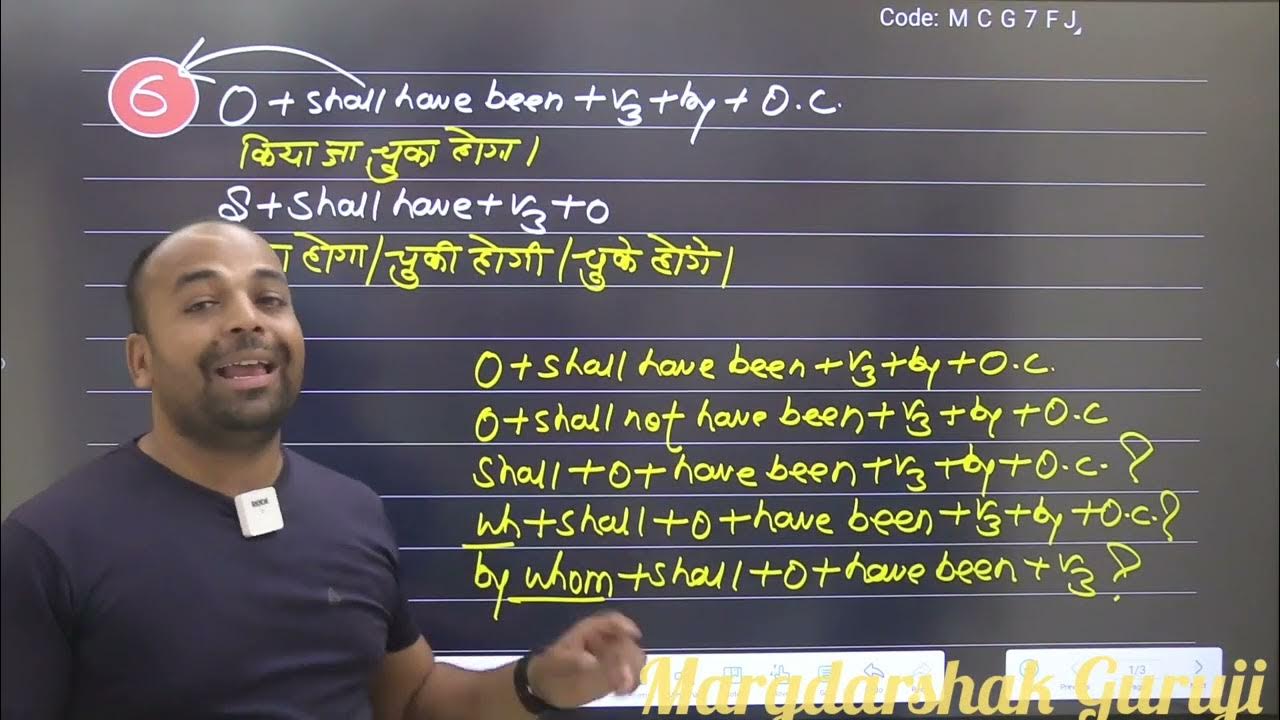 Code: M C G 7 F J
6 O + shall have been + V3 + by + O.C.
किया जा चुका होगा।
S + Shall have + V3 + O
होगा / चुकी होगी / चुके होंगे।
O + Shall have been + V3 + by + O.C.
O + Shall not have been + V3 + by + O.C
Shall + O + have been + V3 + by + O.C. ?
wh + shall + O + have been + V3 + by + O.C. ?
by whom + shall + O + have been + V3 ?
1/3
Margdarshak Guruji